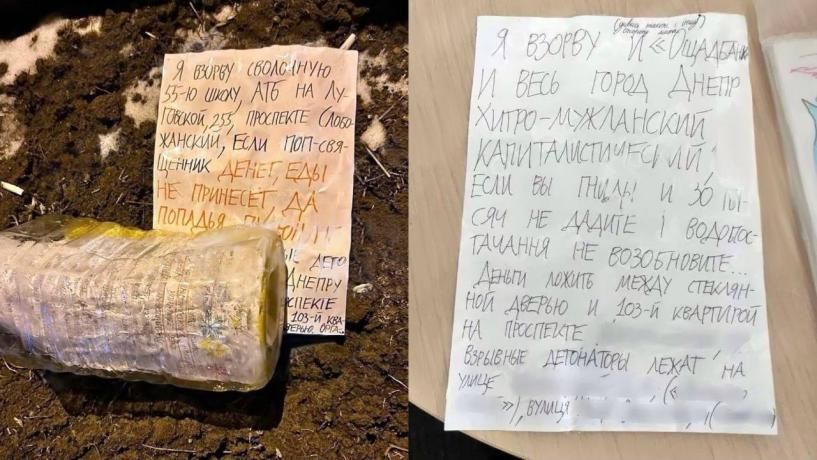 Я ВЗОРВУ СВОЛОЧНУЮ
55-Ю ШКОЛУ, АТБ НА ЛУ-
ГОВСКОЙ, 255, ПРОСПЕКТЕ СЛОБО-
ЖАНСКИЙ, ЕСЛИ ПОП-СВЯ-
ЩЕННИК ДЕНЕГ, ЕДЫ
НЕ ПРИНЕСЕТ, ДА
ПОПАДЬЯ
ДЕТО
ДНЕПРУ
103-Й КВА-
Я ВЗОРВУ И «ОЩАДБАНК
И ВЕСЬ ГОРОД ДНЕПР
ХИТРО-МУЖЛАНСКИЙ
КАПИТАЛИСТИЧЕСКИЙ!
ЕСЛИ ВЫ И 30 ТЫ-
СЯЧ НЕ ДАДИТЕ І ВОДОПОС-
ТАЧАННЯ НЕ ВОЗОБНОВИТЕ...
ДЕНЬГИ ЛОЖИТЬ МЕЖДУ СТЕКЛЯН-
НОЙ ДВЕРЬЮ И 103-Й КВАРТИРОЙ
НА ПРОСПЕКТЕ
ВЗРЫВНЫЕ ДЕТОНАТОРЫ ЛЕЖАТ НА
УЛИЦЕ («
»), ВУЛИЦЯ (